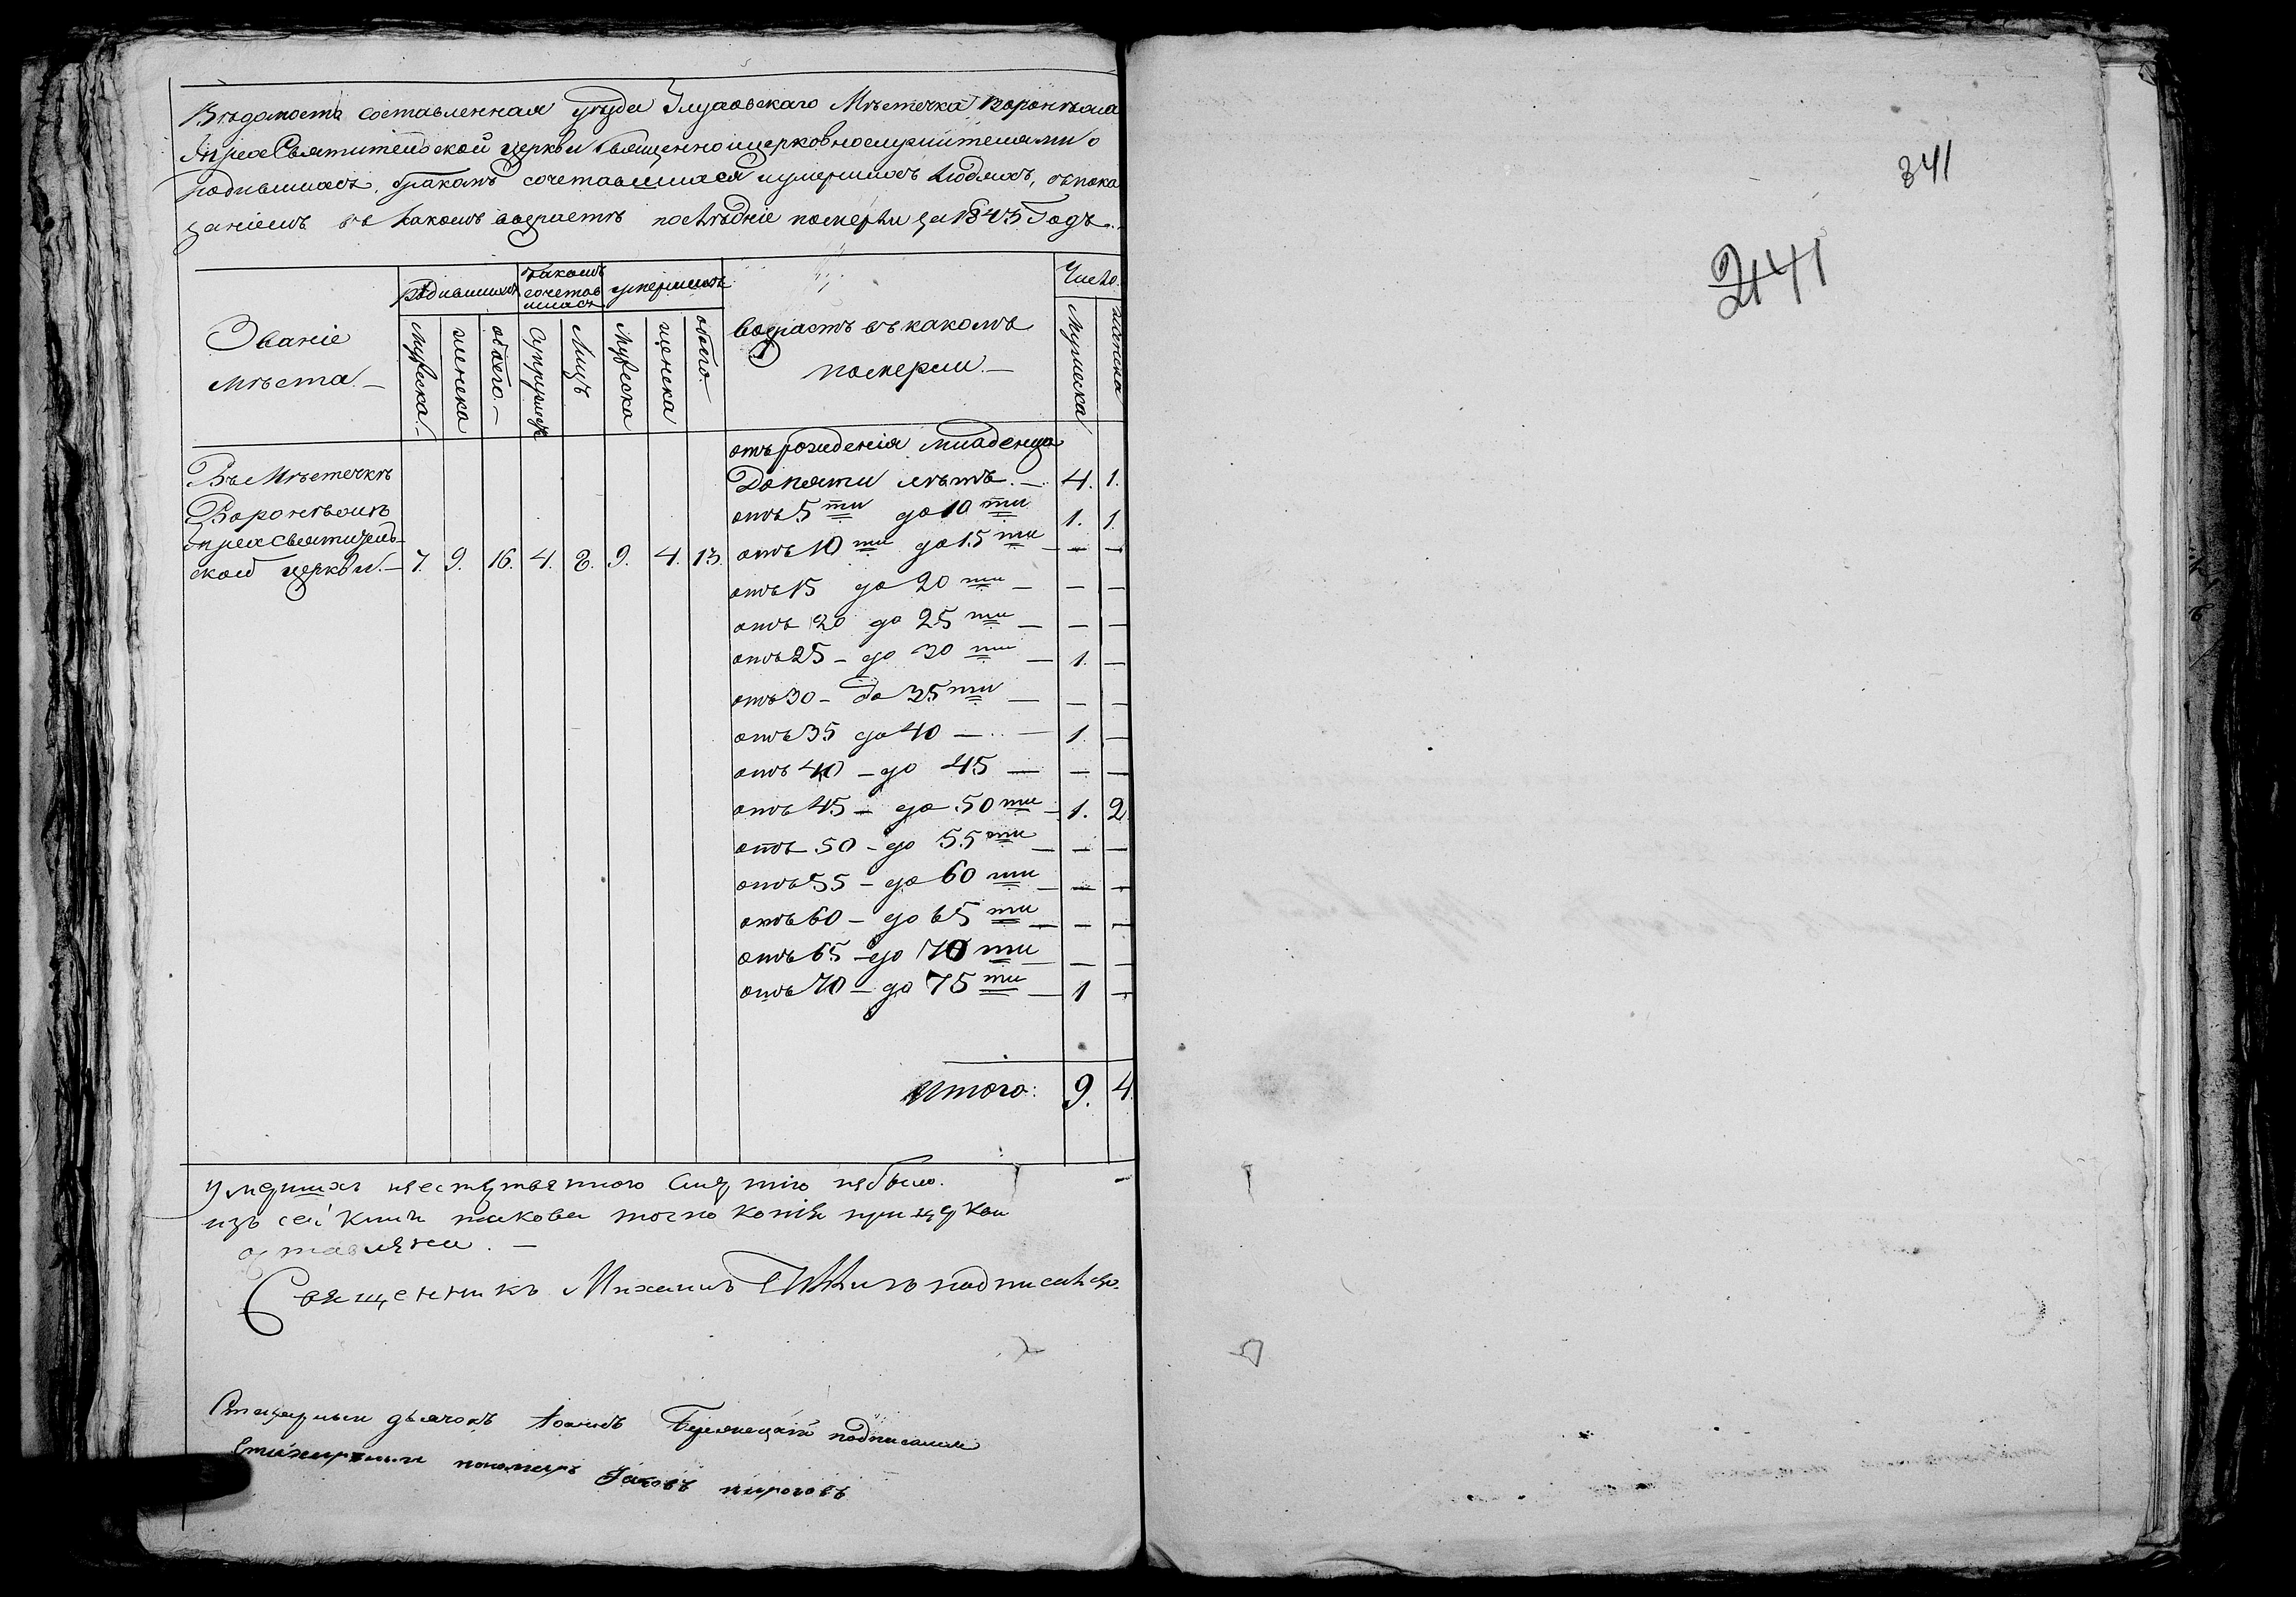 Вѣдомость составленная уѣзда Глуховскаго Мѣстечка Воронѣжа
Трехъ Святительской церкви священно и церковнослужителями о
родившихся, бракомъ сочетавшихся и умершихъ людяхъ, съ пока
заніемъ въ какомъ возрастѣ послѣдніе померли за 1843 Годъ.
Званіе мѣста.
родившихся
бракомъ сочетав шихся
умершихъ
возрастъ въ какомъ померли.
Число.
Мужеска.
женска
обоего.
Супружес
Лицъ
Мужеска
женска
обоего.
Мужеска
женска
Въ Мѣстечкѣ
Воронѣжѣ
Трехъ Святитель
ской церкви. 7. 9. 16. 4. 8. 9. 4. 13.
отъ рожденія младенца
До пяти лѣтъ. — 4. 1.
отъ 5 ти до 10 ти 1. 1.
отъ 10 ти до 15 ти — — —
отъ 15 до 20 ти — — —
отъ 20 до 25 ти — — —
отъ 25 — до 30 ти — 1. —
отъ 30 — до 35 ти — — —
отъ 35 до 40 — — 1. —
отъ 40 — до 45 — — —
отъ 45 — до 50 ти — 1. 2
отъ 50 — до 55 ти — — —
отъ 55 — до 60 ти — — —
отъ 60 — до 65 ти — — —
отъ 65 — до 70 ти — — —
отъ 70 — до 75 ти — 1 —
Итого: 9. 4.
Умершихъ неестественною смертію небыло.
изъ сей книги такова точно копія при церкви
оставлена. —
Священникъ Михаилъ подписалъ.
дьячокъ Іоаннъ подписалъ
пономарь Іаковъ Пироговъ
341
241